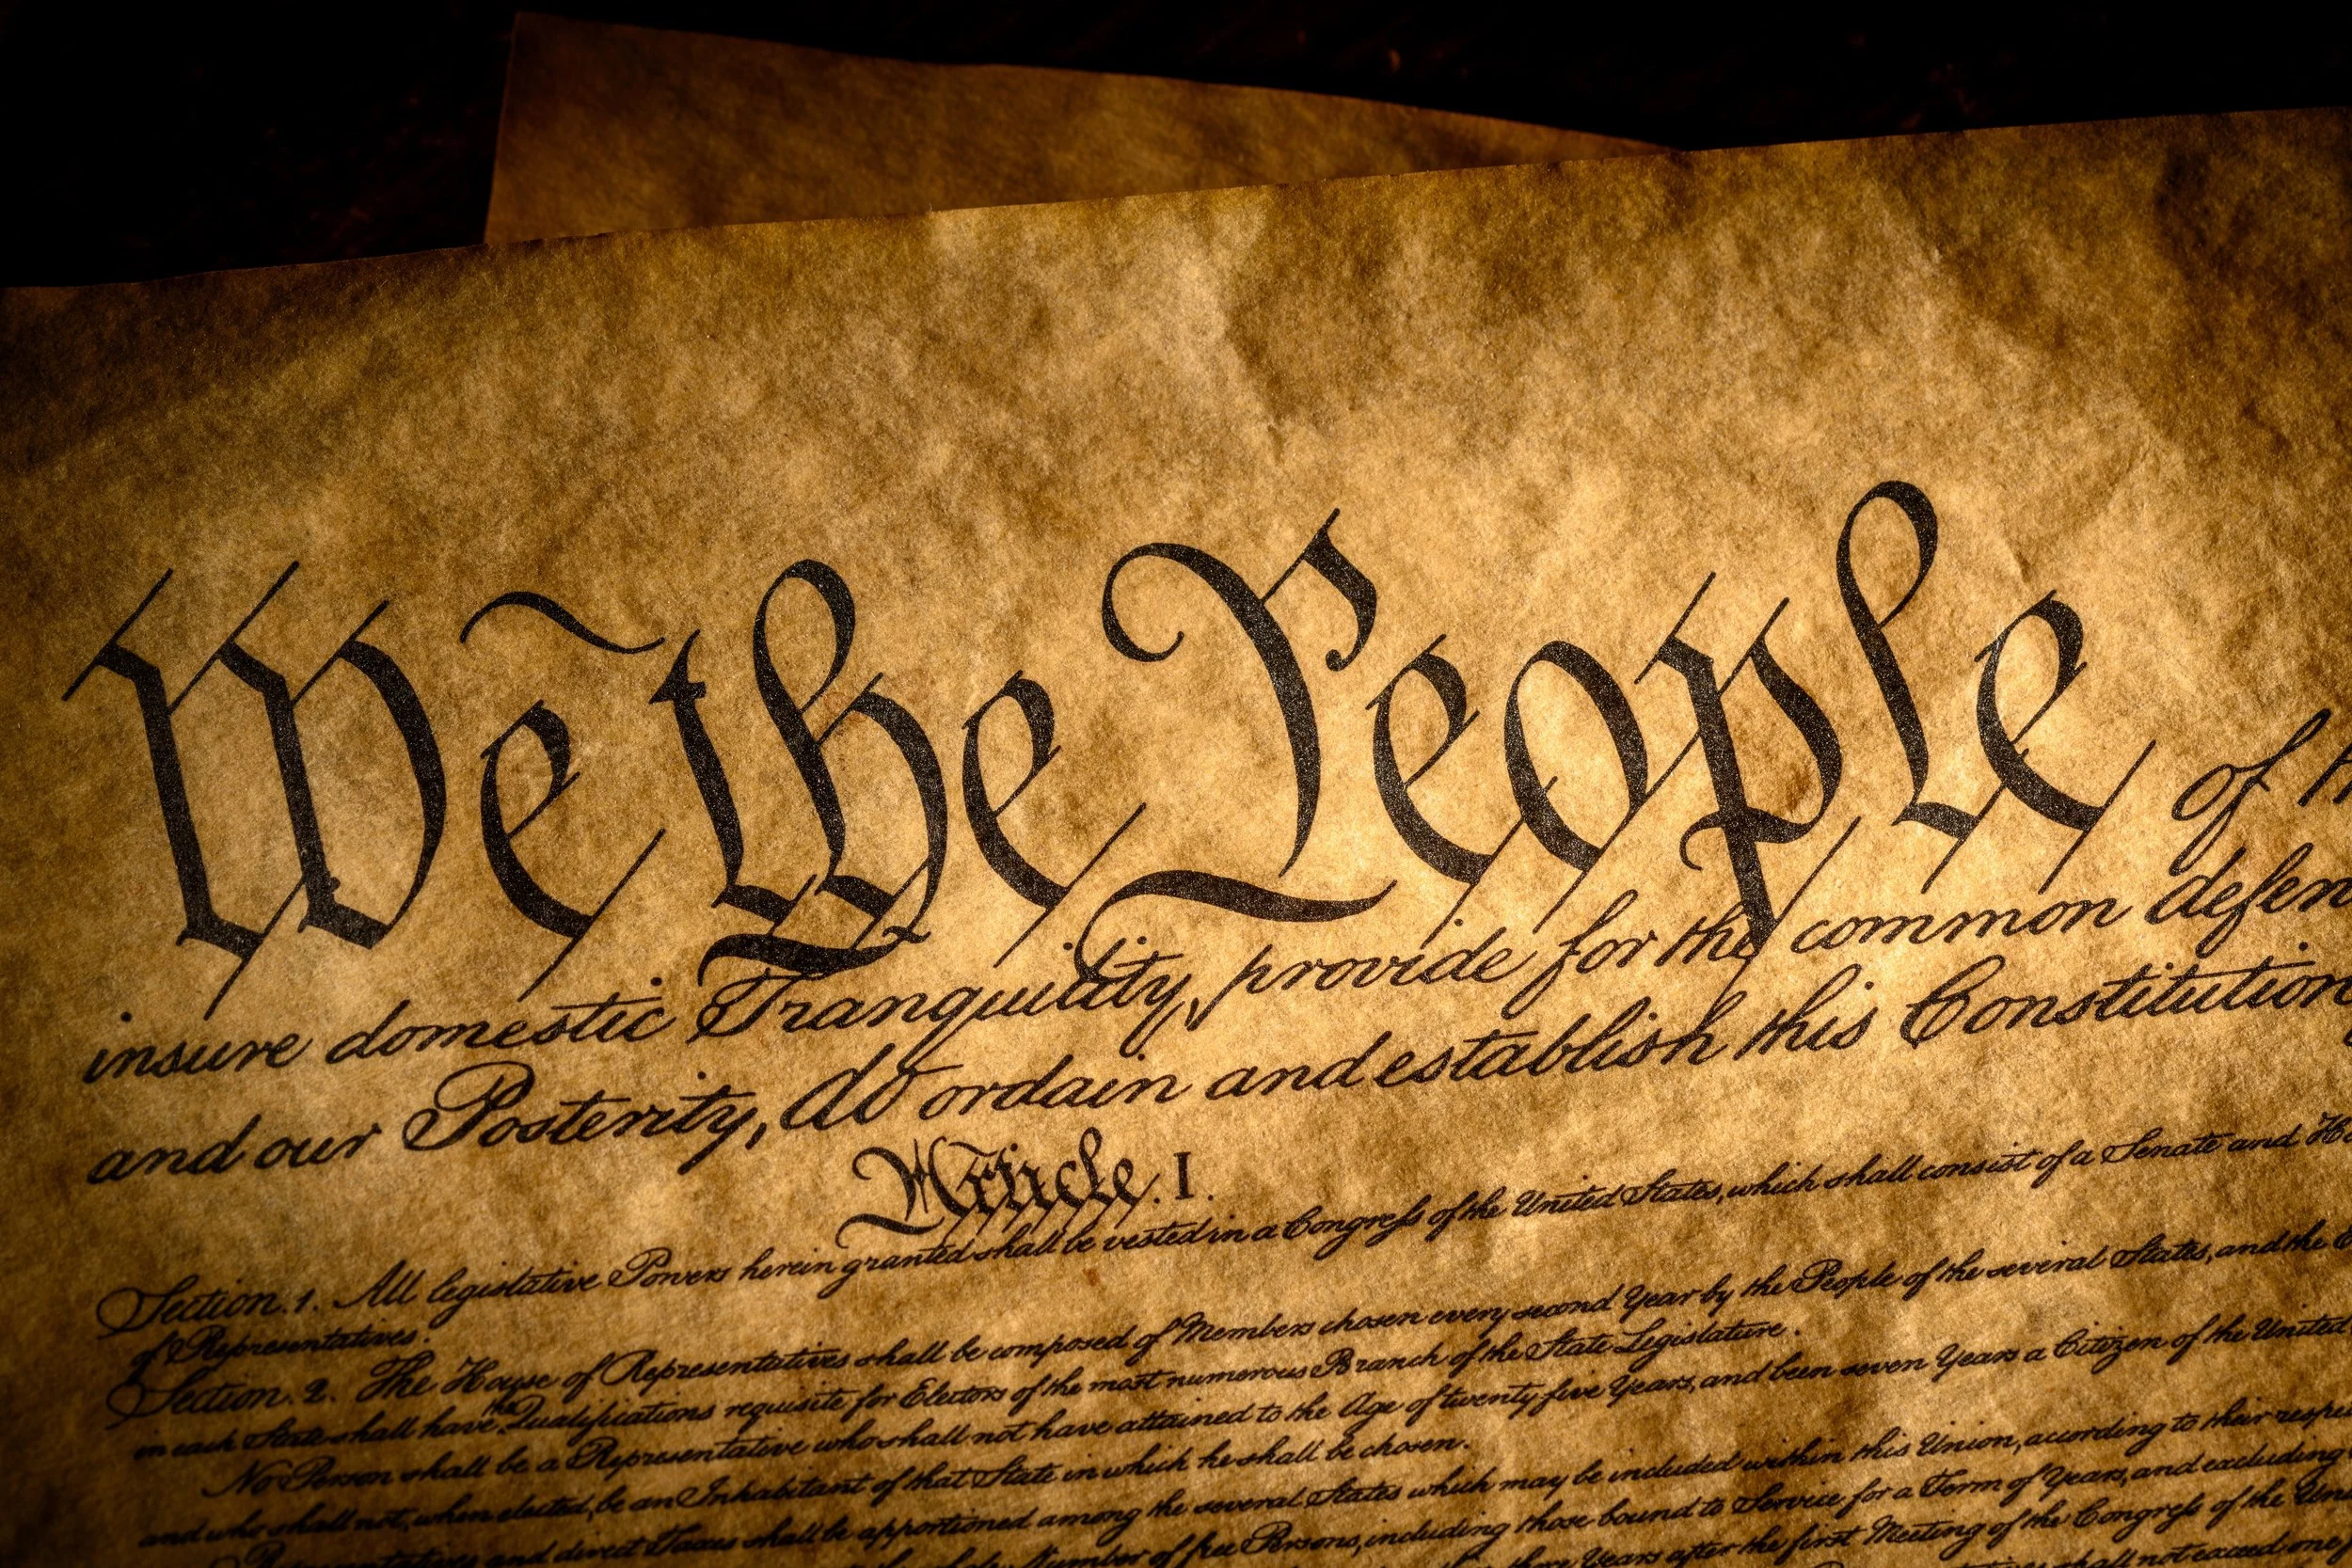 We the People of
insure domestic Tranquility, provide for the common defen
and our Posterity, do ordain and establish this Constitution
Article. I.
Section. 1. All legislative Powers herein granted shall be vested in a Congress of the United States, which shall consist of a Senate and Ho
of Representatives.
Section. 2. The House of Representatives shall be composed of Members chosen every second Year by the People of the several States, and the
in each State shall have the Qualifications requisite for Electors of the most numerous Branch of the State Legislature.
No Person shall be a Representative who shall not have attained to the Age of twenty five Years, and been seven Years a Citizen of the United
and who shall not, when elected, be an Inhabitant of that State in which he shall be chosen.
Representatives and direct Taxes shall be apportioned among the several States which may be included within this Union, according to their respe
Number of free Persons, including those bound to Service for a Term of Years, and excluding
three Years after the first Meeting of the Congress of the Un
shall not exceed one